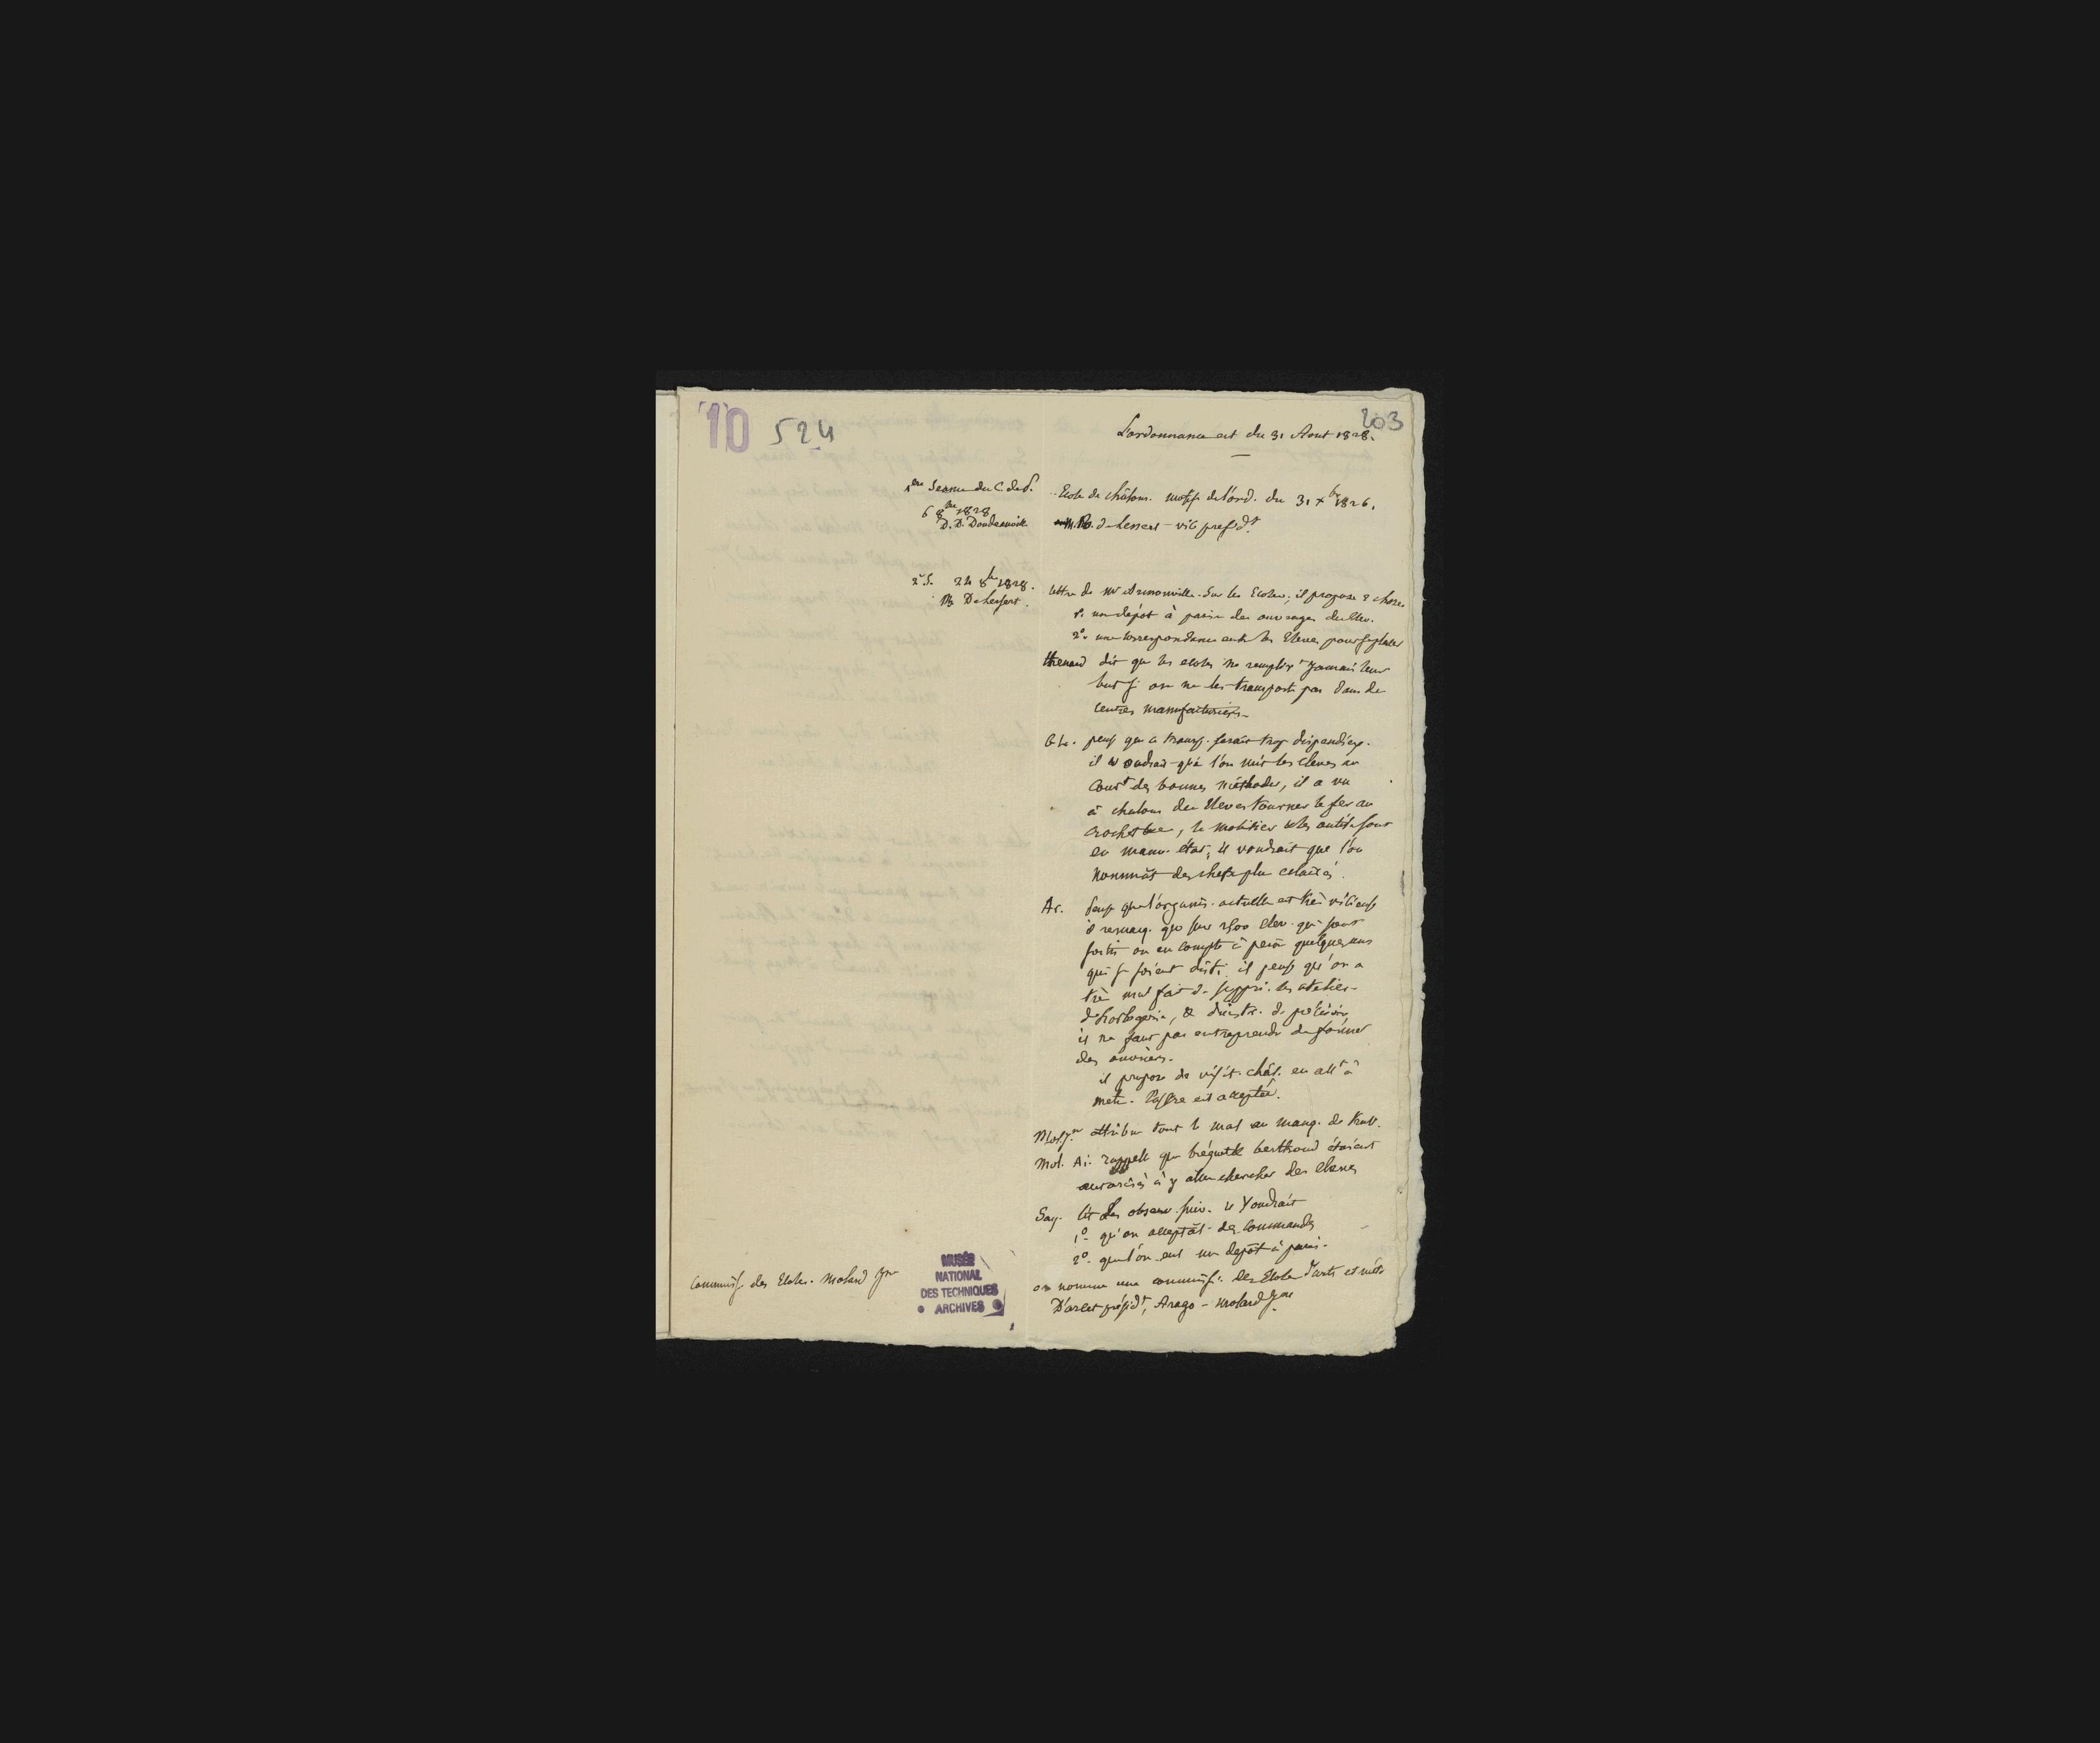 10 524
203
L'ordonnance est du 31 Aout 1828.
1ere Seance du C. de P.
6 8bre 1828
D. D. Doudeauville
Ecole de châlons. modif. de l'ord. du 31 Xbre 1826.
M. B. delessert - vice presidt
2e S. 24 8bre 1828.
Mr Delessert.
lettre de Mr Arnonville. Sur les Ecoles; il propose 2 choses
1o. un depôt à paris des ouvrages
2o. une correspondance entre les Eleves pour se placer
thenard dit que les ecoles ne rempliront Jamais leur
but si on ne les transporte pas dans des
centres manufacturiers.
pense que ce transp. serait trop dispendieux.
il voudrait que l'on mit les eleves au
Courant des bonnes méthodes, il a vu
à chalons des Eleves tourner le fer au
crochet, le mobilier et les outils sont
en mauv. état; il voudrait que l'on
nommât des chefs plus éclairés.
Ar. pense que l'organis. actuelle est très vicieuse
il remarq. que sur 1500 Elev. qui sont
sortis on en compte à peine quelques uns
qui se soient disti. il pense qu'on a
très mal fait de suppri. les atelier
d'horlogerie, & d'instr. de précision,
il ne faut pas entreprendre de former
des ouvriers.
il propose de visit. châl. en allt à
metz. L'offre est acceptée.
Mol. Jne attribue tout le mal au manq. de trav.
Mol. Ai. rappelle que bréguet & berthoud étaient
autorisés à y aller chercher des eleves
Say. lit des observ. suiv. il voudrait
1o. qu'on acceptât des commandes
2o. que l'on eut un depôt à paris.
on nomme une commiss. des Ecoles d'arts et mét.
D'arcet présidt, Arago - molard Jne
Commiss. des Ecoles. Molard Jne
MUSÉE
NATIONAL
DES TECHNIQUES
ARCHIVES